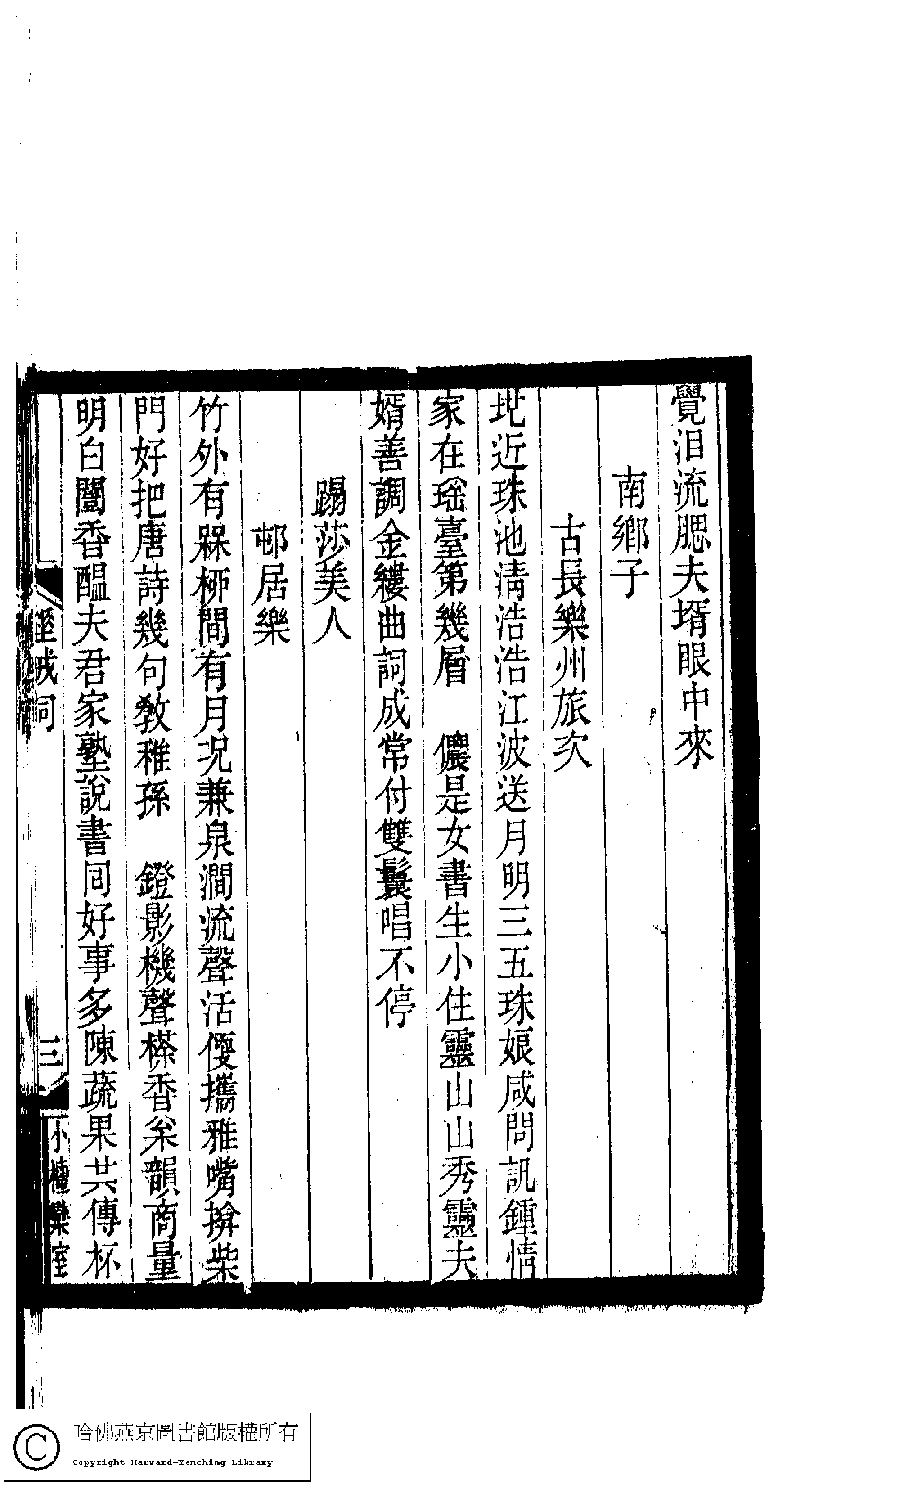 覺泪流腮夫壻眼中來
南鄉子
古長樂州旅次
地近珠池淸浩浩江波送月明三五珠娘咸問訊鍾情
家在瑶臺第幾層　儂是女書生小住靈山山秀靈夫
婿善調金縷曲詞成常付雙鬟唱不停
踢莎美人
邨居樂
竹外有槑栁間有月况兼泉澗流聲活便攜雅嘴揜柴
門好把唐詩幾句敎稚孫　鐙影機聲榚香粂韻商量
明白闈香醖夫君家塾說書同好事多陳蔬果共傳杯
詞
三
小檀欒室
哈佛燕京圖書館版權所有
Copyright Harvard-Yenching Library